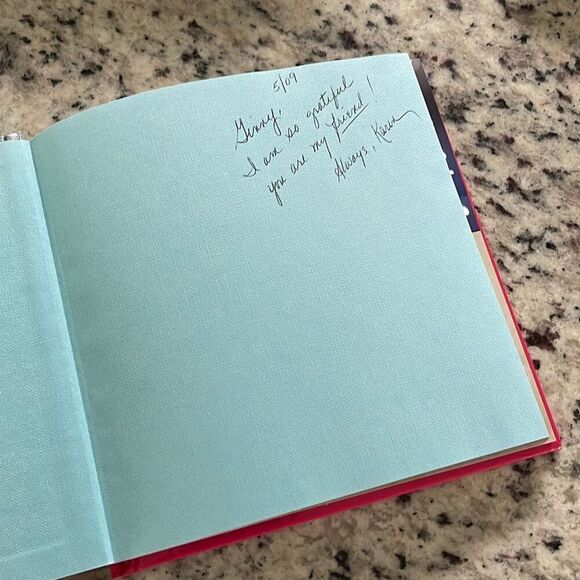 5/09
Ginny,
I am so grateful
you are my friend!
Always, Karen